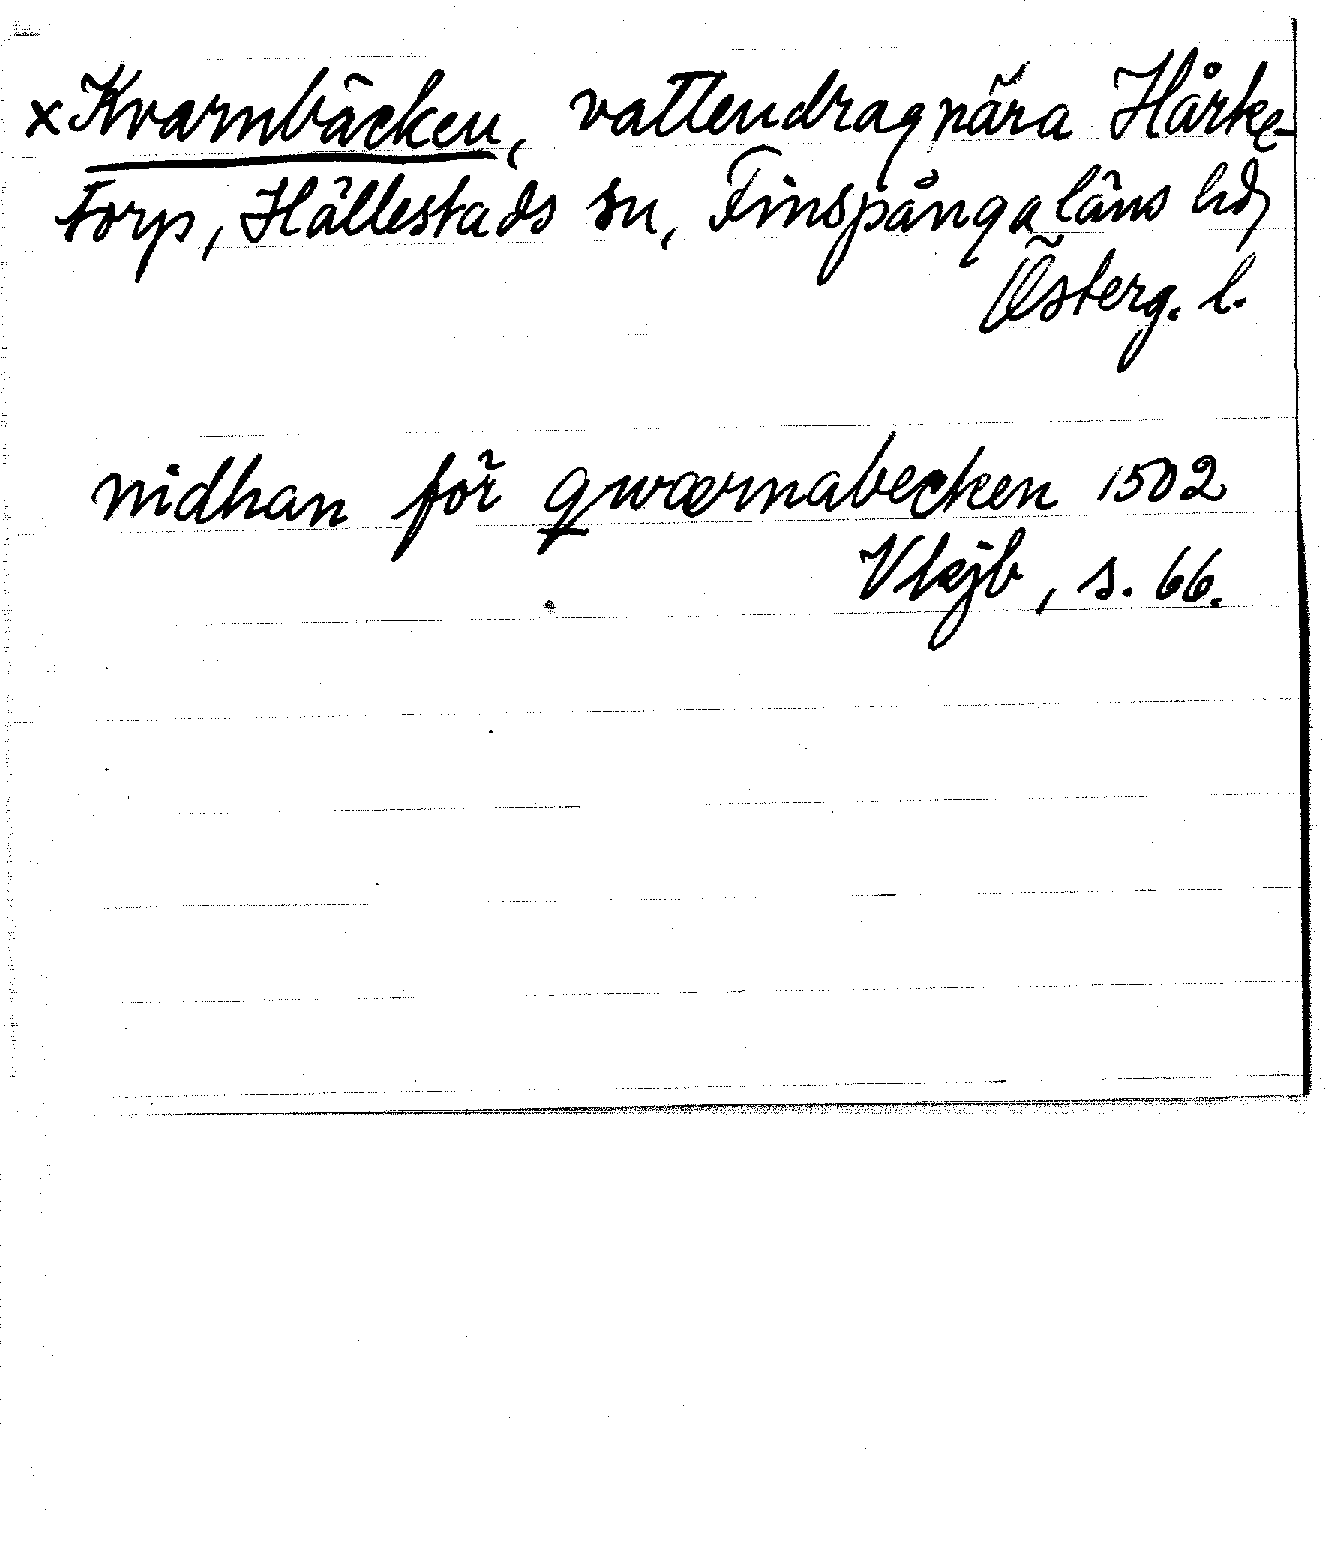 x Kvarnbäcken, vattendrag nära Hårke-
torp, Hällestads sn, Finspånga läns hd,
Österg. l.
nidhan för qwærnabecken 1502
Vkjb, s. 66.